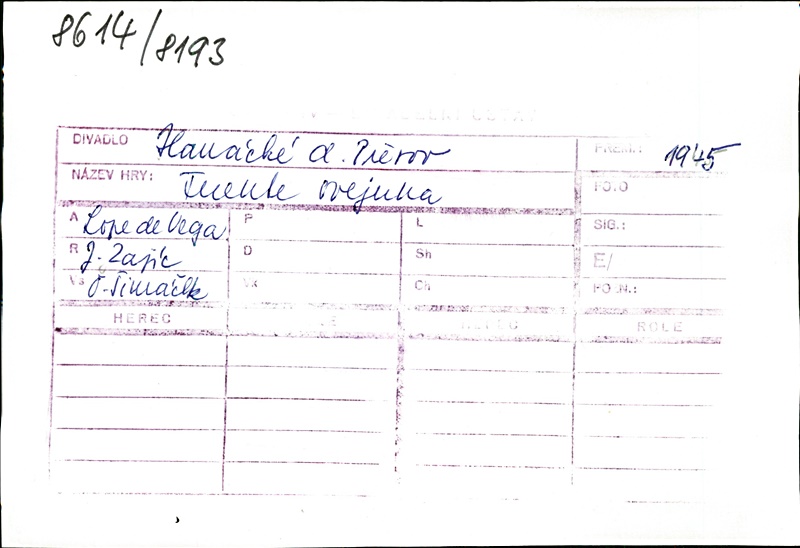 8614/8193
DIVADLO Hanácké d. Přerov PREM.: 1945
NÁZEV HRY: Fuente ovejuna FOTO
A Lope de Vega P L SIG.:
R J. Zajíc D Sh E/
Vs O. Šimáček Vk Ch FO.N.:
HEREC HEREC ROLE